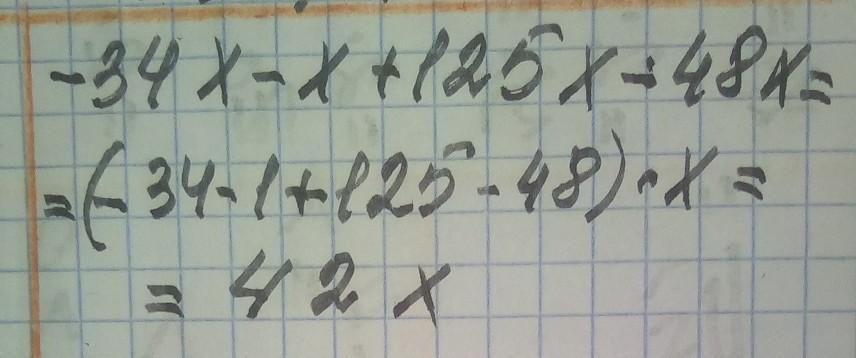 -34x-x+125x-48x=
=(-34-1+125-48)·x=
=42x